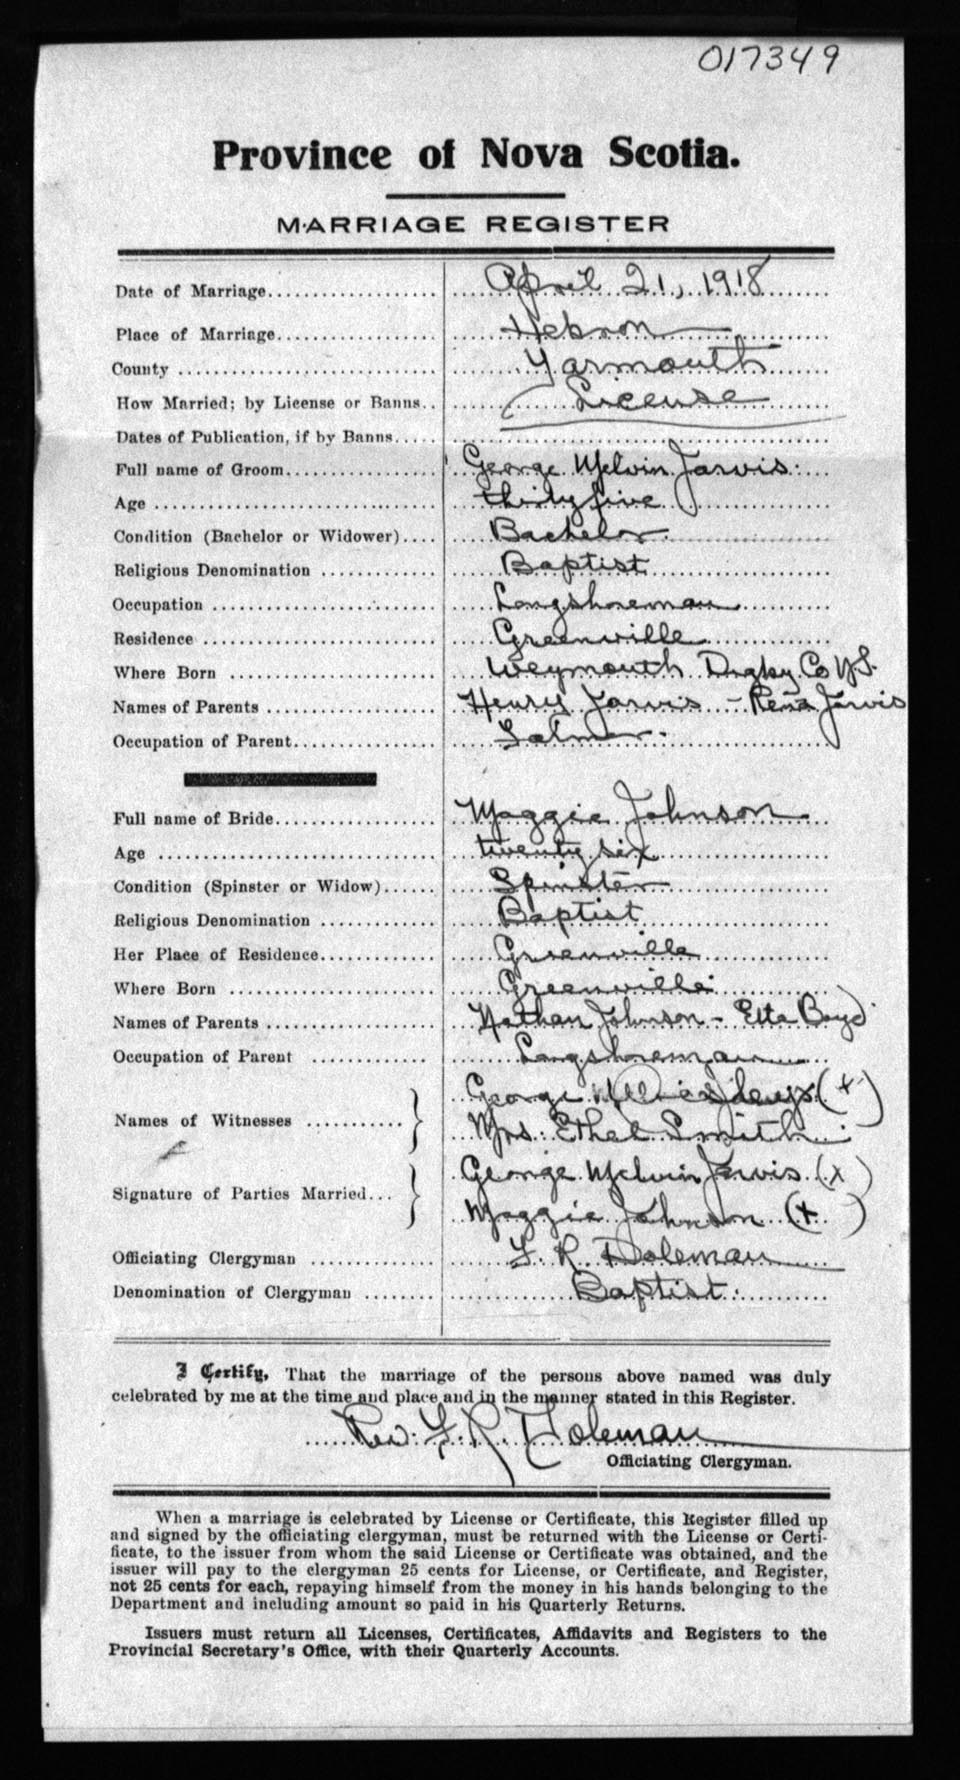 017349
Province of Nova Scotia.
MARRIAGE REGISTER
Date of Marriage.................... April 21, 1918
Place of Marriage................... Hebron
County .............................. Yarmouth
How Married; by License or Banns.. License
Dates of Publication, if by Banns.....
Full name of Groom.................. George Melvin Jarvis
Age .................................. thirty five
Condition (Bachelor or Widower).... Bachelor
Religious Denomination .............. Baptist
Occupation .......................... Longshoreman
Residence ........................... Greenville
Where Born .......................... Weymouth Digby Co N.S.
Names of Parents .................... Henry Jarvis - Rena Jarvis
Occupation of Parent.................
Full name of Bride................... Maggie Johnson
Age .................................. twenty six
Condition (Spinster or Widow)...... Spinster
Religious Denomination .............. Baptist
Her Place of Residence.............. Greenville
Where Born .......................... Greenville
Names of Parents .................... Nathan Johnson - Etta Boyd
Occupation of Parent ............... Longshoreman
George (+)
Names of Witnesses ........... } Mrs. Ethel Smith
George Melvin Jarvis (x)
Signature of Parties Married... } Maggie Johnson (+ )
Officiating Clergyman ............... F. R. Doleman
Denomination of Clergyman ........ Baptist.
I Certify, That the marriage of the persons above named was duly
celebrated by me at the time and place and in the manner stated in this Register.
Rev. F. R. Doleman
Officiating Clergyman.
When a marriage is celebrated by License or Certificate, this Register filled up
and signed by the officiating clergyman, must be returned with the License or Certi-
ficate, to the issuer from whom the said License or Certificate was obtained, and the
issuer will pay to the clergyman 25 cents for License, or Certificate, and Register,
not 25 cents for each, repaying himself from the money in his hands belonging to the
Department and including amount so paid in his Quarterly Returns.
Issuers must return all Licenses, Certificates, Affidavits and Registers to the
Provincial Secretary's Office, with their Quarterly Accounts.